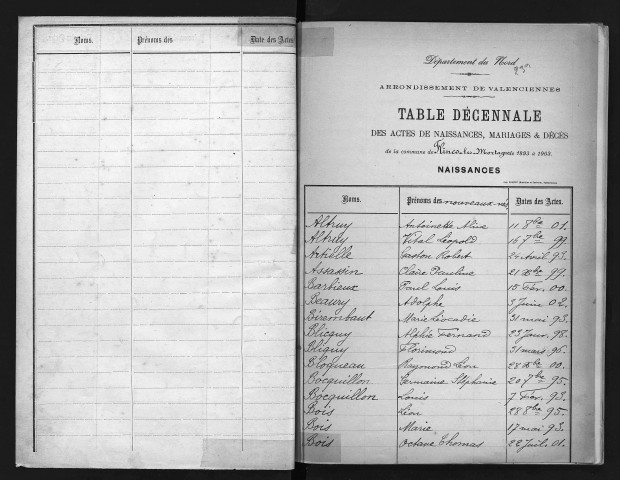 Noms. Prénoms des Date des Actes.
Département du Nord
ARRONDISSEMENT DE VALENCIENNES
TABLE DÉCENNALE
DES ACTES DE NAISSANCES, MARIAGES & DÉCÈS
de la commune de Flines-lez-Mortagne 1893 à 1903.
NAISSANCES
Noms. Prénoms des nouveaux-nés Dates des Actes.
Altruy Antoinette Aline 11 8bre 01.
Altruy Vital Léopold 16 7bre 99.
Artielle Gaston Robert 24 Avril 93.
Assassin Claire Pauline 21 Xbre 99.
Bartieux Paul Louis 15 Fév. 00.
Beaury Adolphe 3 Juin 02.
Birembaut Marie Léocadie 31 mai 93.
Blicquy Alphie Fernand 23 Janv. 98.
Bliquy Florimond 31 mars 96.
Bloqueau Raymond Léon 28 Xbre 00.
Bocquillon Germaine Stéphanie 20 7bre 95.
Bocquillon Louis 7 Fév. 93.
Bois Léon 28 8bre 95.
Bois Marie 17 mai 93.
Bois Octave Thomas 22 Juil. 01.